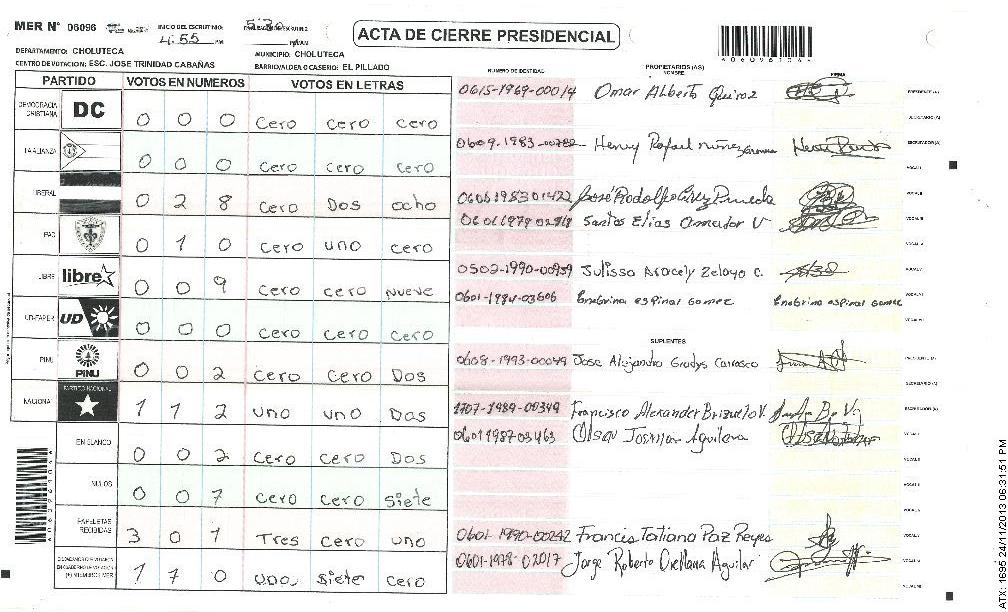 MER N° 06096 INICIO DEL ESCRUTINIO: 4:55 PM 5:30 PM/AM
ACTA DE CIERRE PRESIDENCIAL
DEPARTAMENTO: CHOLUTECA MUNICIPIO: CHOLUTECA
CENTRO DE VOTACION: ESC. JOSE TRINIDAD CABAÑAS BARRIO/ALDEA O CASERIO: EL PILLADO
PARTIDO VOTOS EN NUMEROS VOTOS EN LETRAS
DEMOCRACIA CRISTIANA DC 0 0 0 cero cero cero
LA ALIANZA 0 0 0 cero cero cero
LIBERAL 0 2 8 cero Dos ocho
PAC 0 1 0 cero uno cero
LIBRE libre 0 0 9 cero cero nueve
UD-FAPER UD 0 0 0 cero cero cero
PINU PINU 0 0 2 cero cero Dos
NACIONAL PARTIDO NACIONAL 1 1 2 uno uno Dos
EN BLANCO 0 0 2 cero cero Dos
NULOS 0 0 7 cero cero siete
PAPELETAS RECIBIDAS 3 0 1 Tres cero uno
(+) MIEMBROS MER 1 7 0 uno siete cero
NUMERO DE IDENTIDAD PROPIETARIOS (AS) NOMBRE FIRMA
0615-1969-00014 Omar Alberto Quiroz PRESIDENTE (A)
SECRETARIO (A)
0609-1983-00782 Henry Rafael Nuñez ESCRUTADOR (A)
VOCAL I
0606198301422 José Rodolfo Pineda VOCAL II
Santos Elias Amador V VOCAL III
VOCAL IV
0502-1990-00939 Julissa Aracely Zelaya C. VOCAL V
0601-1984-03606 Enebrina espinal Gomez Enebrina espinal Gomez VOCAL VI
VOCAL VII
SUPLENTES
0608-1993-00049 Jose Alejandro Gradys Carrasco PRESIDENTE (A)
SECRETARIO (A)
1707-1989-00349 Francisco Alexander Brizuela V. ESCRUTADOR (A)
0601198703463 Aguilera VOCAL I
VOCAL II
VOCAL III
VOCAL IV
0601-1990-00242 Francis Tatiana Paz Reyes VOCAL V
0601-1978-02017 Jorge Roberto Orellana Aguilar VOCAL VI
VOCAL VII
ATX: 1695 24/11/2013 06:31:51 PM